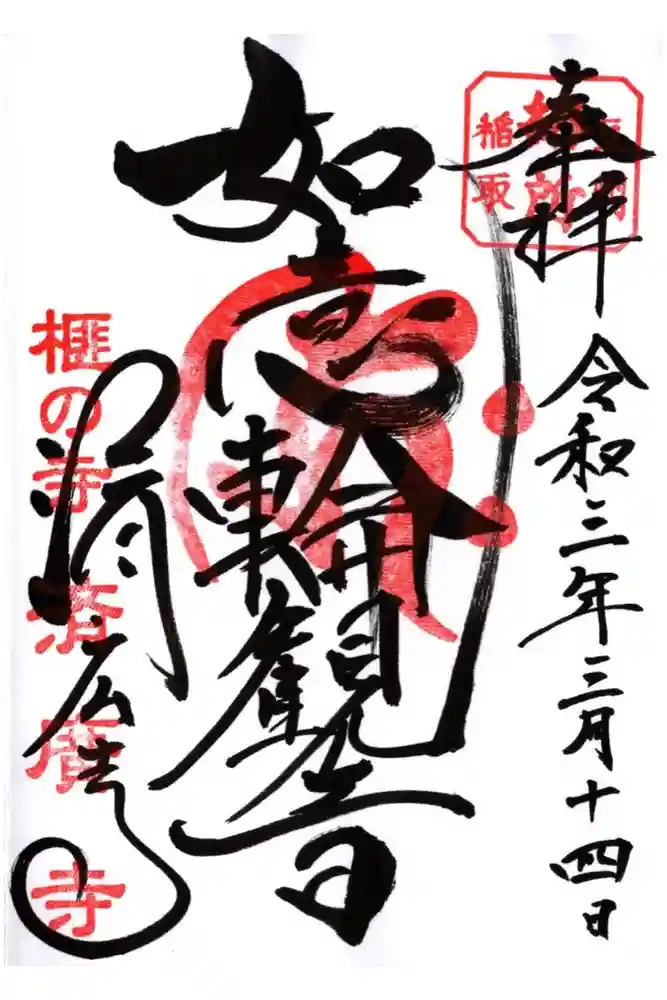 奉拝
令和三年三月十四日
如意輪観音
済広寺
稲取
榧の寺
済廣寺